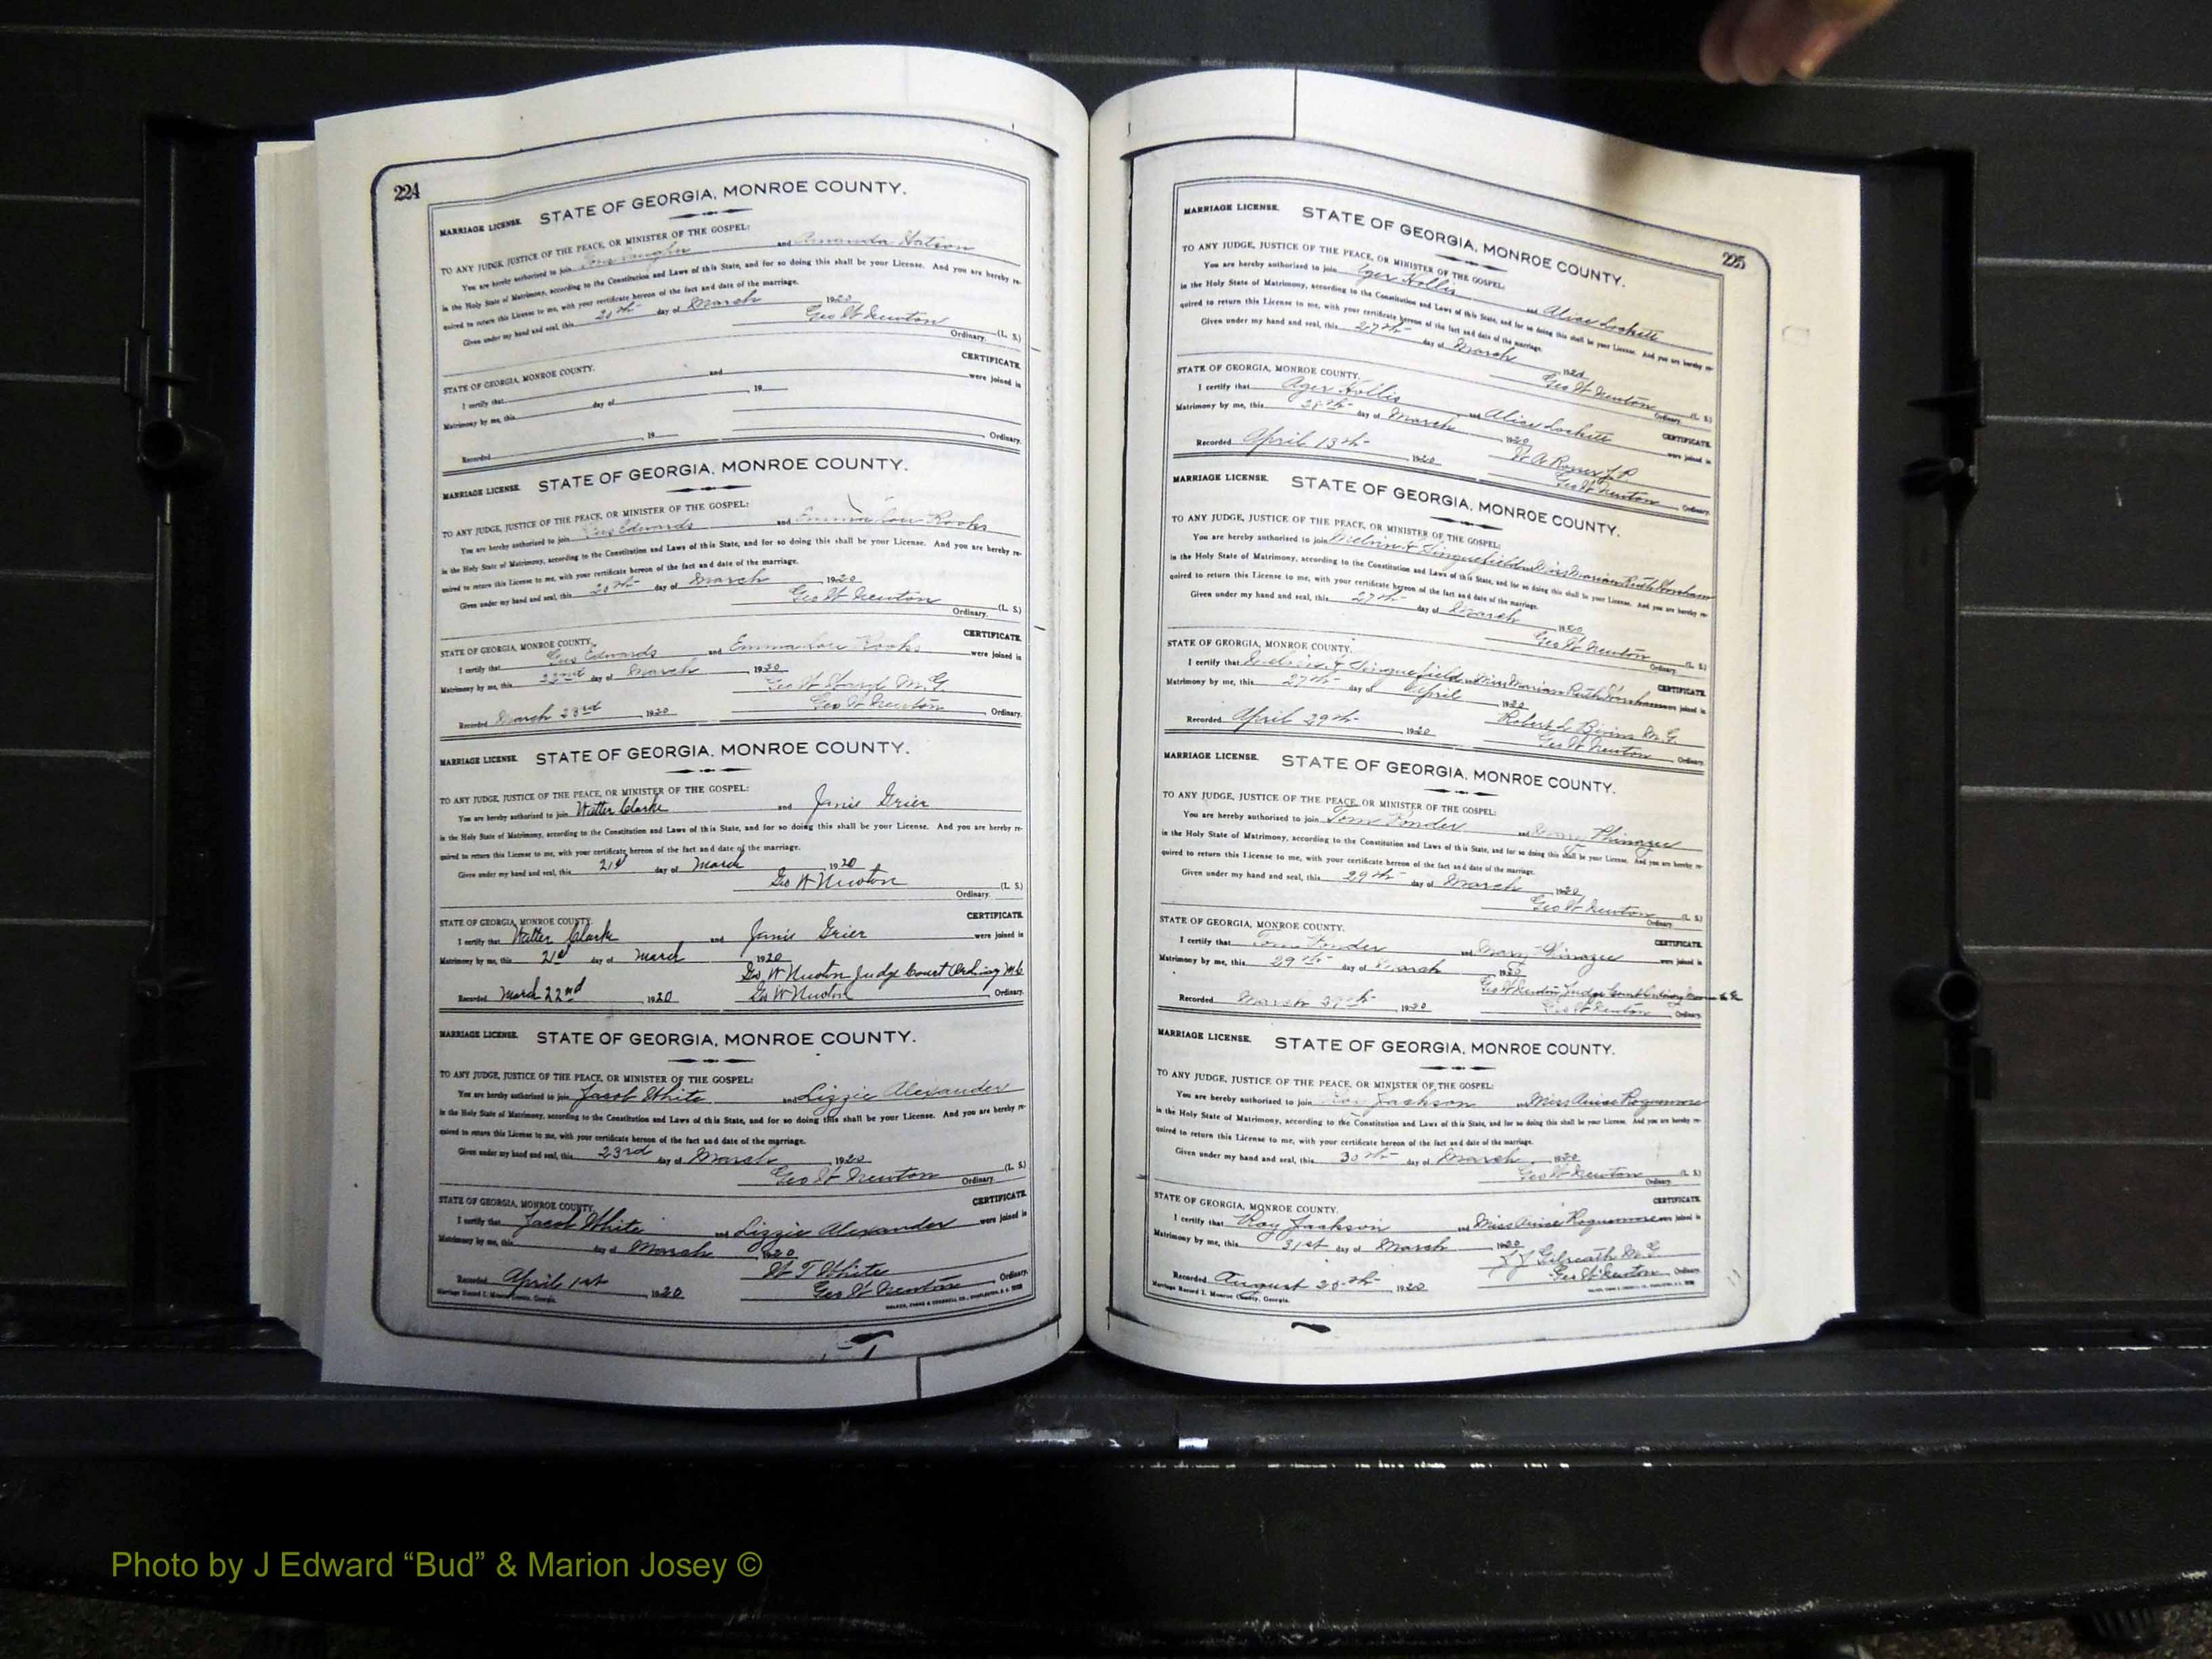 224
MARRIAGE LICENSE. STATE OF GEORGIA, MONROE COUNTY.
TO ANY JUDGE, JUSTICE OF THE PEACE, OR MINISTER OF THE GOSPEL:
You are hereby authorized to join Vaughn and Amanda Watson
in the Holy State of Matrimony, according to the Constitution and Laws of this State, and for so doing this shall be your License. And you are hereby re-
quired to return this License to me, with your certificate hereon of the fact and date of the marriage.
Given under my hand and seal, this 20th day of March 1920
Geo W Newton (L. S.)
Ordinary.
CERTIFICATE.
STATE OF GEORGIA, MONROE COUNTY.
I certify that and were joined in
Matrimony by me, this day of , 19
Recorded 19 Ordinary.
MARRIAGE LICENSE. STATE OF GEORGIA, MONROE COUNTY.
TO ANY JUDGE, JUSTICE OF THE PEACE, OR MINISTER OF THE GOSPEL:
You are hereby authorized to join Gus Edwards and Emma Lou Rooks
in the Holy State of Matrimony, according to the Constitution and Laws of this State, and for so doing this shall be your License. And you are hereby re-
quired to return this License to me, with your certificate hereon of the fact and date of the marriage.
Given under my hand and seal, this 20th day of March , 1920
Geo W Newton (L. S.)
Ordinary.
STATE OF GEORGIA, MONROE COUNTY. CERTIFICATE.
I certify that Gus Edwards and Emma Lou Rooks were joined in
Matrimony by me, this 22nd day of March , 1920
Geo W M.G.
Recorded March 23rd , 1920 Geo W Newton , Ordinary.
MARRIAGE LICENSE. STATE OF GEORGIA, MONROE COUNTY.
TO ANY JUDGE, JUSTICE OF THE PEACE, OR MINISTER OF THE GOSPEL:
You are hereby authorized to join Walter Clarke and Janie Grier
in the Holy State of Matrimony, according to the Constitution and Laws of this State, and for so doing this shall be your License. And you are hereby re-
quired to return this License to me, with your certificate hereon of the fact and date of the marriage.
Given under my hand and seal, this 21st day of March , 1920
Geo W Newton (L. S.)
Ordinary.
STATE OF GEORGIA, MONROE COUNTY. CERTIFICATE.
I certify that Walter Clark and Janie Grier were joined in
Matrimony by me, this 21st day of March 1920
Geo W Newton Judge Court Ordinary M C
Recorded March 22nd , 1920 Geo W Newton , Ordinary.
MARRIAGE LICENSE. STATE OF GEORGIA, MONROE COUNTY.
TO ANY JUDGE, JUSTICE OF THE PEACE, OR MINISTER OF THE GOSPEL:
You are hereby authorized to join Jacob White and Lizzie Alexander
in the Holy State of Matrimony, according to the Constitution and Laws of this State, and for so doing this shall be your License. And you are hereby re-
quired to return this License to me, with your certificate hereon of the fact and date of the marriage.
Given under my hand and seal, this 23rd day of March , 1920
Geo W Newton (L. S.)
Ordinary.
STATE OF GEORGIA, MONROE COUNTY. CERTIFICATE.
I certify that Jacob White and Lizzie Alexander were joined in
Matrimony by me, this day of March , 1920
W T White
Recorded April 1st , 1920 Geo W Newton , Ordinary.
Marriage Record I. Monroe County, Georgia.
225
MARRIAGE LICENSE. STATE OF GEORGIA, MONROE COUNTY.
TO ANY JUDGE, JUSTICE OF THE PEACE, OR MINISTER OF THE GOSPEL:
You are hereby authorized to join Hollis and Alice Lockett
in the Holy State of Matrimony, according to the Constitution and Laws of this State, and for so doing this shall be your License. And you are hereby re-
quired to return this License to me, with your certificate hereon of the fact and date of the marriage.
Given under my hand and seal, this 27th day of March , 1920
Geo W Newton (L. S.)
Ordinary.
STATE OF GEORGIA, MONROE COUNTY. CERTIFICATE.
I certify that Ager Hollis and Alice Lockett were joined in
Matrimony by me, this 28th day of March , 1920
Recorded April 13th 1920 Geo W Newton , Ordinary.
MARRIAGE LICENSE. STATE OF GEORGIA, MONROE COUNTY.
TO ANY JUDGE, JUSTICE OF THE PEACE, OR MINISTER OF THE GOSPEL:
You are hereby authorized to join Melvin F Singuefield and Miss Marian Ruth
in the Holy State of Matrimony, according to the Constitution and Laws of this State, and for so doing this shall be your License. And you are hereby re-
quired to return this License to me, with your certificate hereon of the fact and date of the marriage.
Given under my hand and seal, this 27th day of March , 1920
Geo W Newton (L. S.)
Ordinary.
STATE OF GEORGIA, MONROE COUNTY. CERTIFICATE.
I certify that Melvin F Singuefield and Miss Marian Ruth were joined in
Matrimony by me, this 27th day of April , 1920
Robert L Bivins M.G.
Recorded April 29th , 1920 Geo W Newton , Ordinary.
MARRIAGE LICENSE. STATE OF GEORGIA, MONROE COUNTY.
TO ANY JUDGE, JUSTICE OF THE PEACE, OR MINISTER OF THE GOSPEL:
You are hereby authorized to join Tom Ponder and Mary Phinazee
in the Holy State of Matrimony, according to the Constitution and Laws of this State, and for so doing this shall be your License. And you are hereby re-
quired to return this License to me, with your certificate hereon of the fact and date of the marriage.
Given under my hand and seal, this 29th day of March , 1920
Geo W Newton (L. S.)
Ordinary.
STATE OF GEORGIA, MONROE COUNTY. CERTIFICATE.
I certify that Tom Ponder and Mary Finazee were joined in
Matrimony by me, this 29th day of March , 1920
Geo W Newton Judge Court Ordinary
Recorded March 29th , 1920 Geo W Newton , Ordinary.
MARRIAGE LICENSE. STATE OF GEORGIA, MONROE COUNTY.
TO ANY JUDGE, JUSTICE OF THE PEACE, OR MINISTER OF THE GOSPEL:
You are hereby authorized to join Roy Jackson and Miss Roquemore
in the Holy State of Matrimony, according to the Constitution and Laws of this State, and for so doing this shall be your License. And you are hereby re-
quired to return this License to me, with your certificate hereon of the fact and date of the marriage.
Given under my hand and seal, this 30th day of March , 1920
Geo W Newton (L. S.)
Ordinary.
STATE OF GEORGIA, MONROE COUNTY. CERTIFICATE.
I certify that Roy Jackson and Miss Roquemore were joined in
Matrimony by me, this 31st day of March , 1920
Gilreath M.G.
Recorded August 20th , 1920 Geo W Newton , Ordinary.
Marriage Record I. Monroe County, Georgia.
Photo by J Edward “Bud” & Marion Josey ©